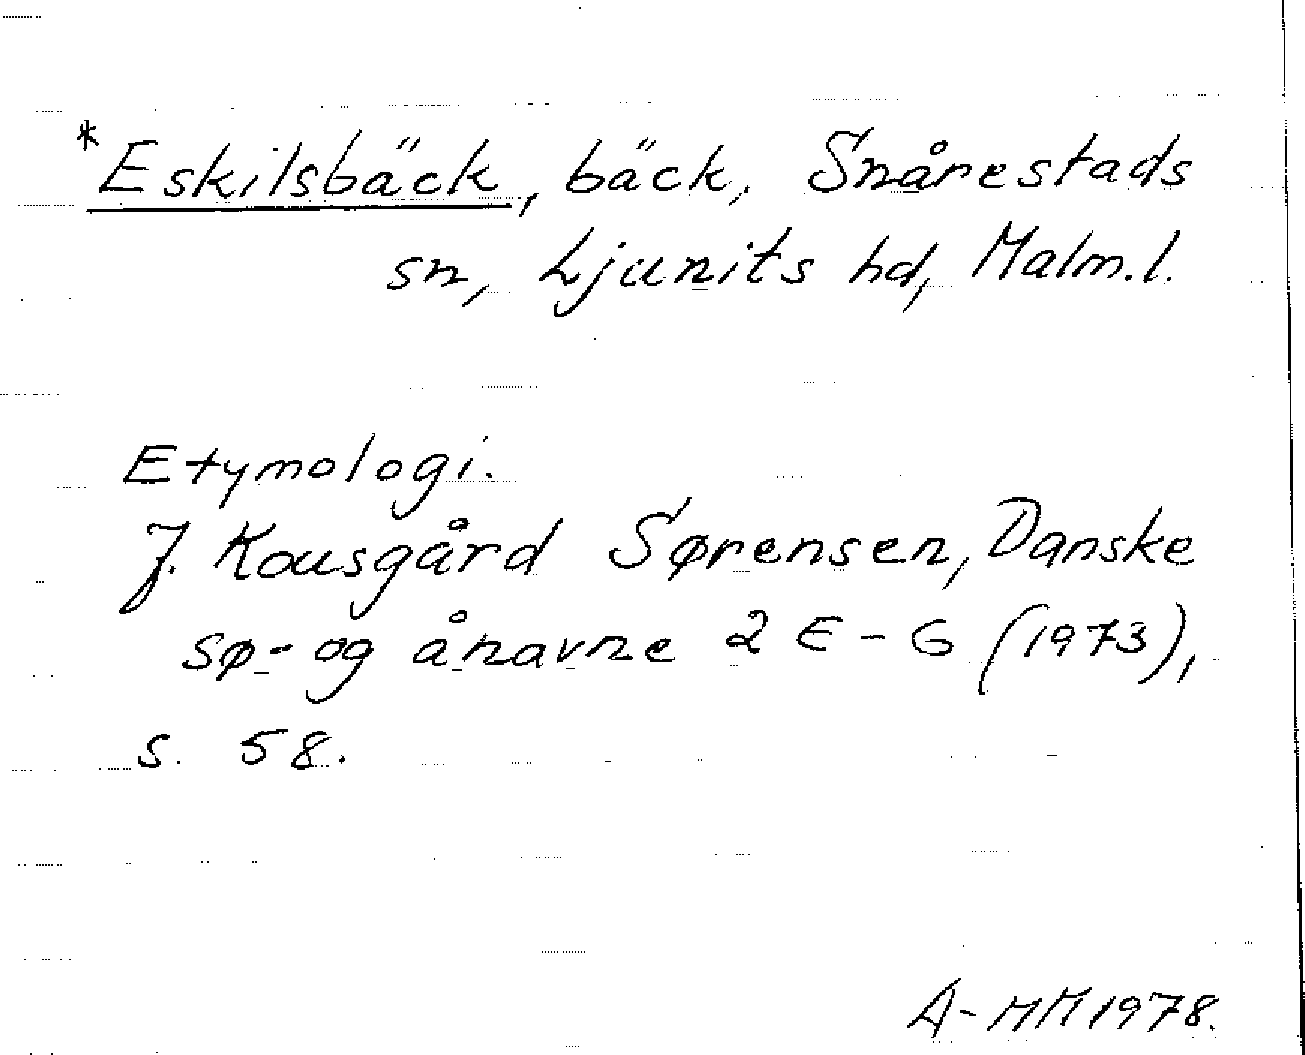 *Eskilsbäck, bäck, Snårestads
sn, Ljunits hd, Malm.l.
Etymologi.
J. Kousgård Sørensen, Danske
sø- og ånavne 2 E-G (1973),
s. 58.
A-MM 1978.